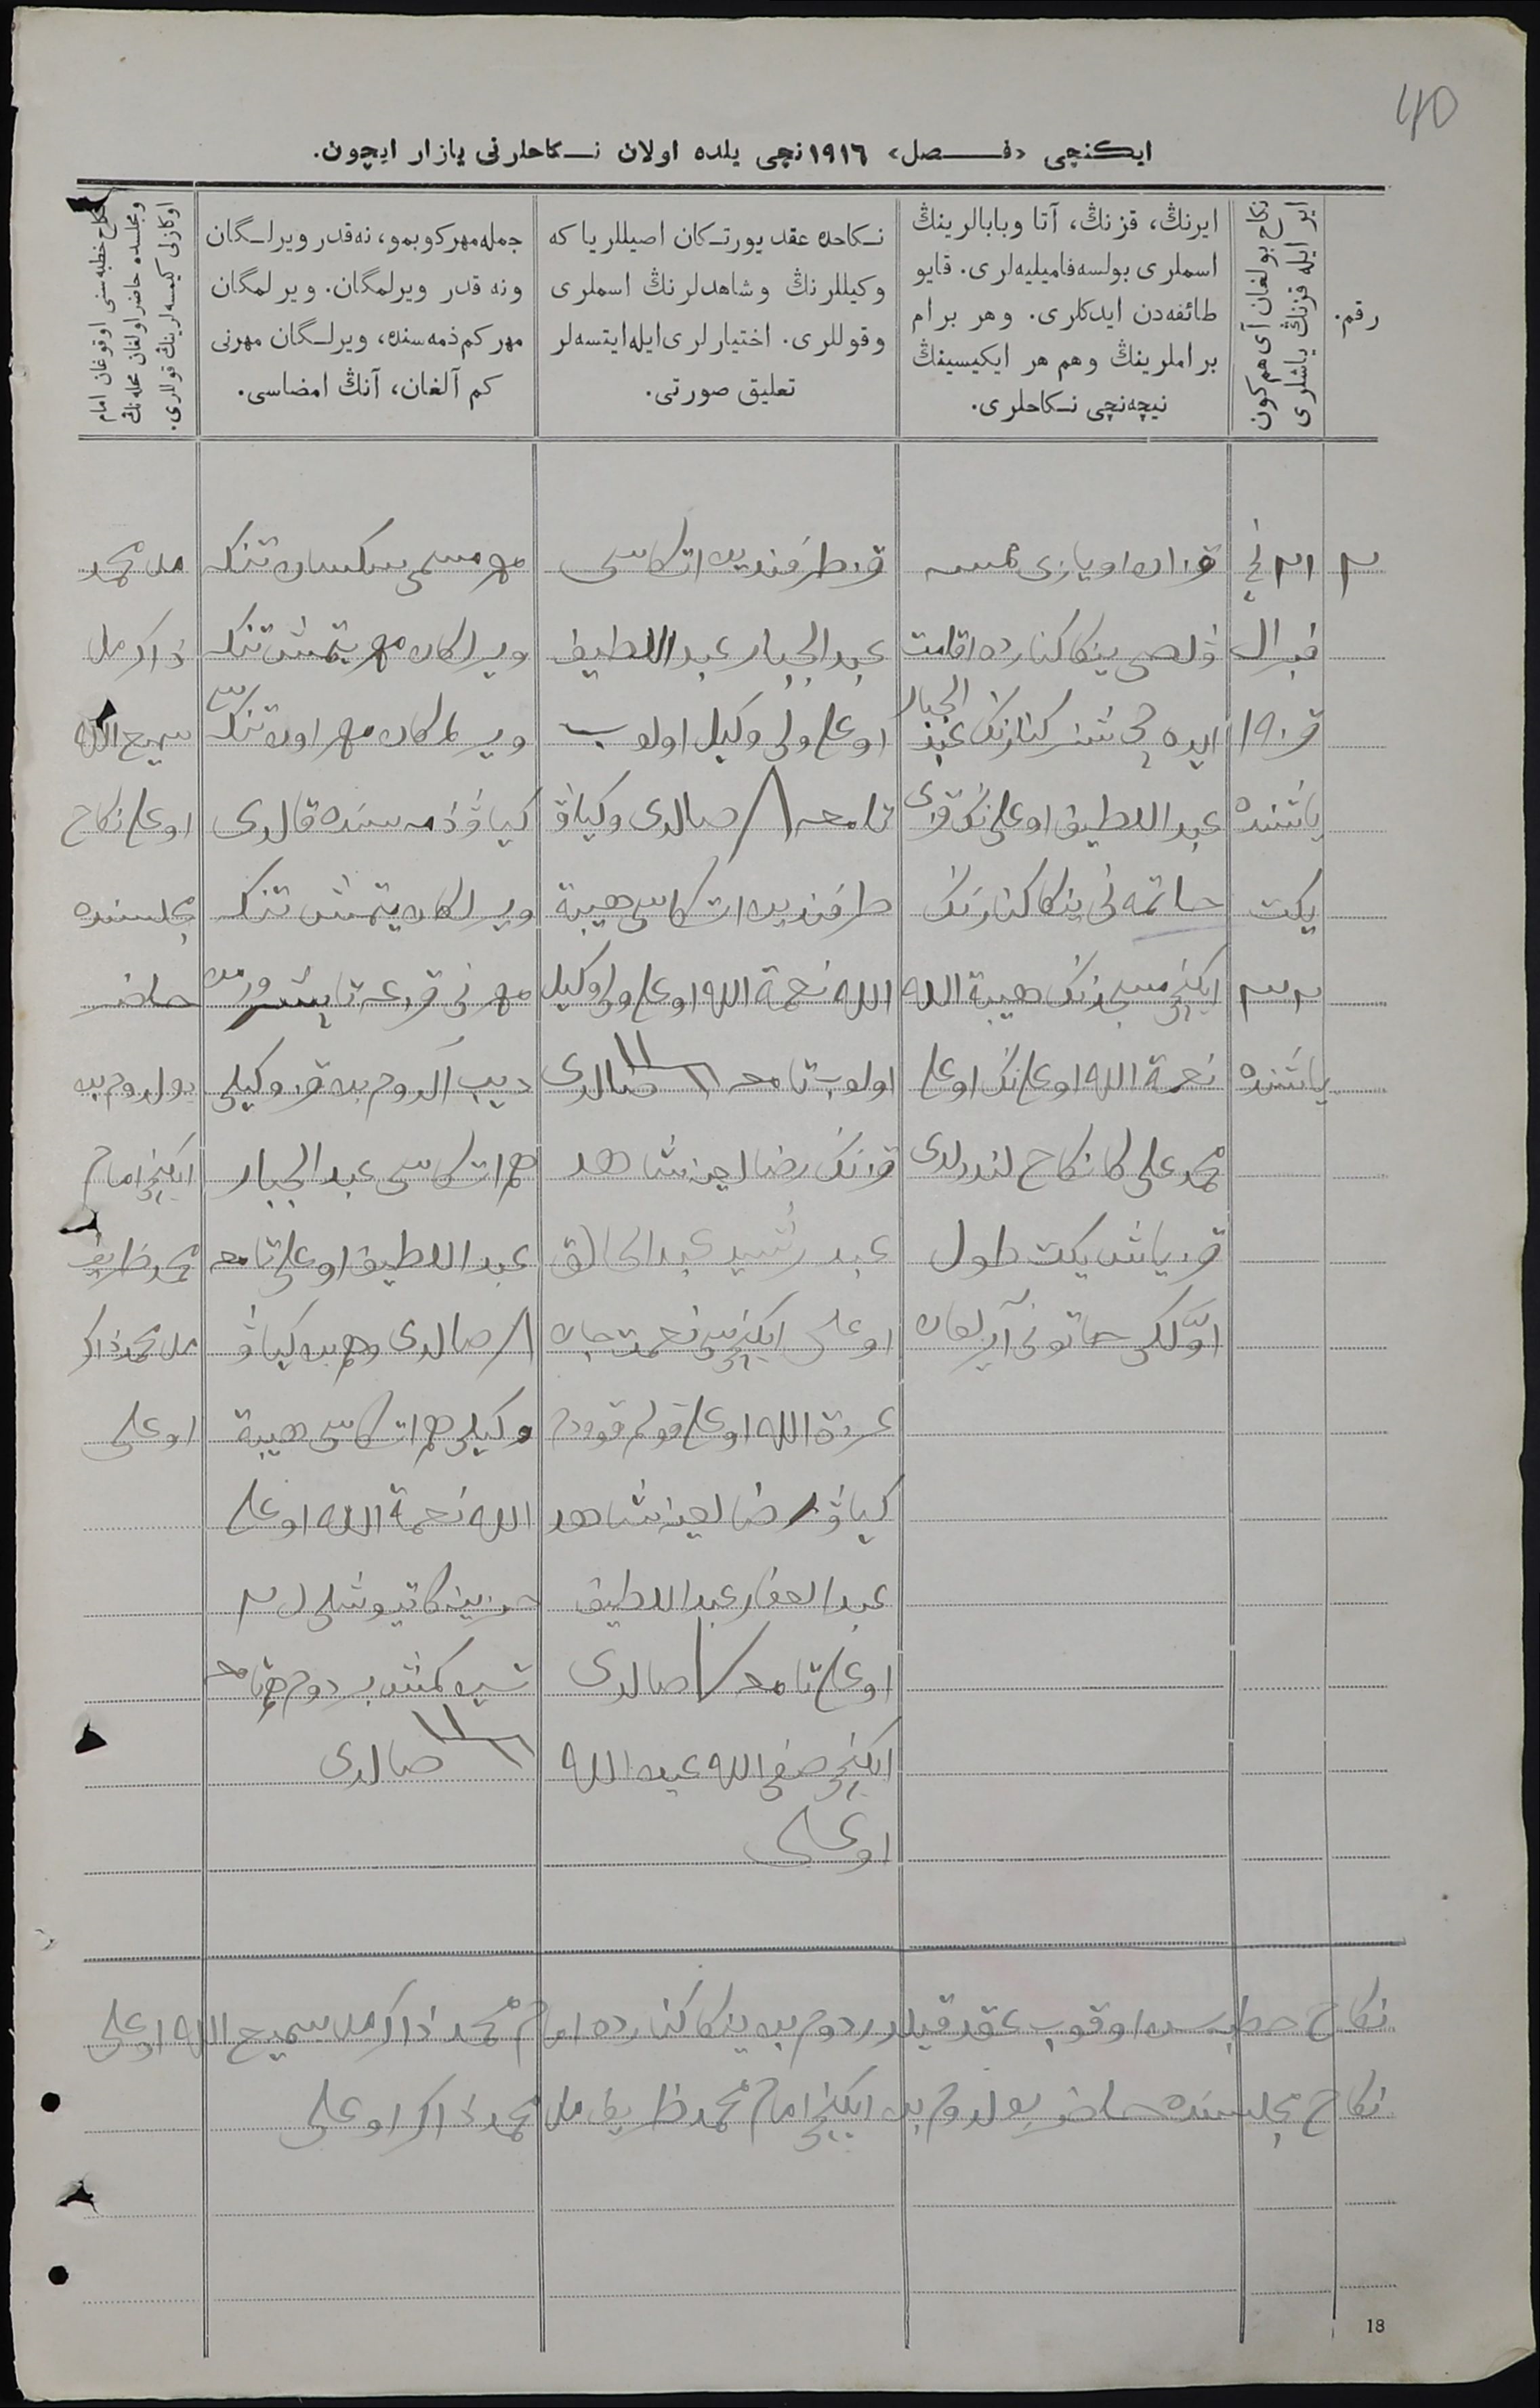 40
ایكنچی «فـــصل» ١٩١٦ نچی یلده اولان نـكاحلرنی یازار ایچون.
رقم.
نكاح بولغان آی هم كون
ایر ایله قزنڭ یاشلری
ایرنڭ، قزنڭ، آتا وبابالرینڭ
اسملری بولسه فامیلیه‌لری. قایو
طائفه‌دن ایدكلری. وهر برام
براملرینڭ وهم هر ایكیسینڭ
نیچه‌نچی نـكاحلری.
نـكاحده عقد یورتـكان اصیللر یا كه
وكیللرنڭ وشاهدلرنڭ اسملری
وقوللری. اختیارلری ایله ایتسه‌لر
تعلیق صورتی.
جمله مهر كوبمو، نه‌قدر ویرلـگان
ونه قدر ویرلمگان. ویرلمگان
مهر كم ذمه‌سنده، ویرلـگان مهرنی
كم آلغان، آنڭ امضاسی.
نكاح خطبه‌سنی اوقوغان امام
ومجلسده حاضر اولغان محله‌نڭ
اوكازلی كیمسه‌لرینڭ قوللری.
٢
٢١ نچی
فبرال
قز ١٩
یاشنده
یكت
٢٣
یاشنده
قزان اویازی
ینكا كنارده اقامت
ایده چی كنارنك عبد الجبار
عبد اللطیف اوغلی نك قزی
حاتمه نی ینكا كنارنك
ایكنچی مسجدنك هیبة الله
نعمة الله اوغلی نك اوغلی
محمد علی كا نكاح لندرلدی
قز یاش یكت طول
اوّلكی خاتونی آیرلغان
قز طرفندین اتاسی
عبد الجبار عبد اللطیف
اوغلی ولی وكیل اولوب
تامغه / صالدی وكیاۋ
طرفندین اتاسی هیبة
الله نعمة الله اوغلی ولی وكیل
اولوب تامغه صالدی
قزنك رضالغینه شاهد
عبد رشید عبد الخالق
اوغلی ایكنچیسی نعمت جان
عزة الله اوغلی قولم قویدم
كیاۋ رضالغینه شاهد
عبد الغفار عبد اللطیف
اوغلی تامغه / صالدی
ایكنچی صفی الله عبد الله
اوغلی
مهر مسمی سكسان تنكه
ویرلكان مهر یتمش تنكه
ویرلماكان مهر اون تنكه سی
كیاۋ ذمه سنده قالدی
ویرلكان یتمش تنكه
مهرنی قزغه تابشرورمن
دیب آلدوم بن قز وكیلی
هم اتاسی عبد الجبار
عبد اللطیف اوغلی تامغه
/ صالدی وهم بن كیاۋ
وكیلی هم اتاسی هیبة
الله نعمة الله اوغلی
بردوم هم تامغه
صالدی
ملا محمد
ذاكر ملا
سمیع الله
اوغلی نكاح
مجلسنده
حاضر
بولدوم بن
ایكنچی امام
محمد ظریف
ملا محمد ذاكر
اوغلی
نكاح خطبه سن اوقوب عقد قیلدردوم بن ینكا كنارده امام محمد ذاكر ملا سمیع الله اوغلی
نكاح مجلسنده حاضر بولدوم بن ایكنچی امام محمد ظریف ملا محمد ذاكر اوغلی
18